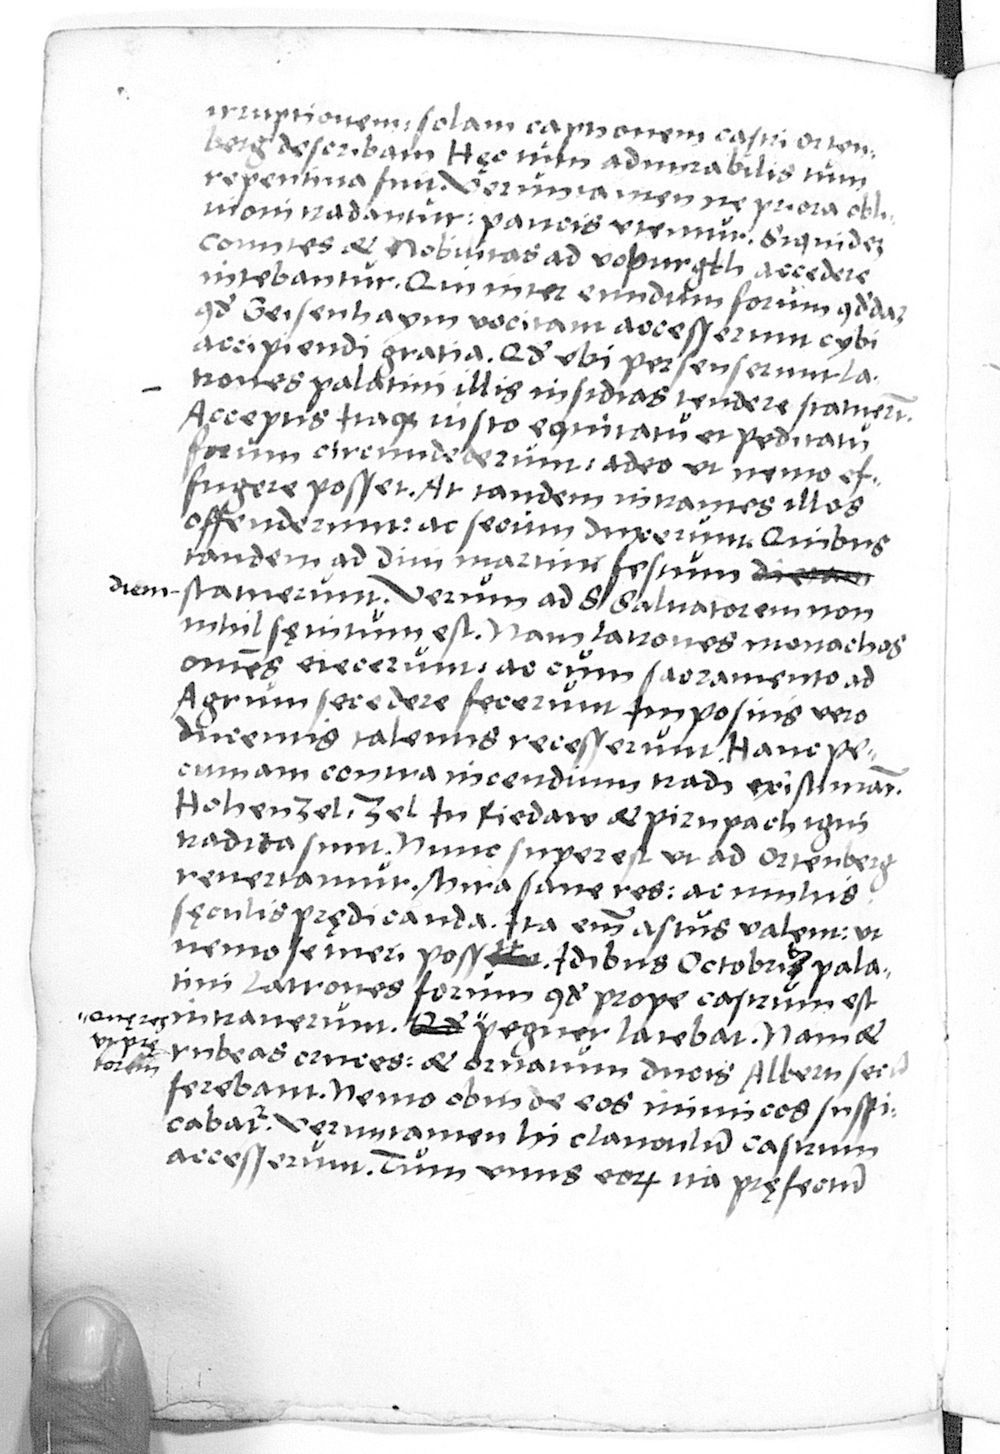 irruptionem: solam captionem castri orten-
berg describam Hęc tum admirabilis tum
repentina fuit. Verumtamen ne priora obli-
uioni tradantur: paucis utemur. Siquidez
comites & Nobilitas ad vohpurgkh accedere
nitebantur. Qui inter eundum forum qd'daz
qd' Geisenhaym vocitant accesserunt cybi
accipiendi gratia. Qd' ubi persenserunt la-
trones palatini illis insidias tendere statuerūt.
Acceptis itaq; iusto equitatu et peditatu
forum circundederunt: adeo ut nemo ef-
fugere posset. At tandem intrantes illos
offenderunt: ac secum duxerunt. Quibus
tandem ad diui martini festum
diem statuerunt. Verum ad S Saluatorem non
nihil sęuitum est. Nam latrones monachos
omēs eiecerunt: ac cum sacramento ad
Agrum secedere fecerunt Impositis vero
ducentis talentis recesserunt. Hanc pe-
cuniam contra incendium tradi existimāt.
Hohenzel, Zel In Riedaw & pirnpach igni
tradita sunt. Nunc superest ut ad Ortenberg
reuertamur. Mira sane res: ac multis
sęculis prędicanda. Ita em̄ astus valent: ut
nemo se tueri poss. Idibus Octobris pala-
tini Latrones forum qd' prope castrum est
intrauerunt. Qd' pegner latebat. Nam &
Quę res
ut prę
torem
rubeas cruces: & ornatum ducis Alberti secū
ferebant. Nemo obinde eos inimicos suspi-
cabat². Verumtamen hi clanculū castrum
accesserunt. Tum unus eoꝝ ita pręfectū